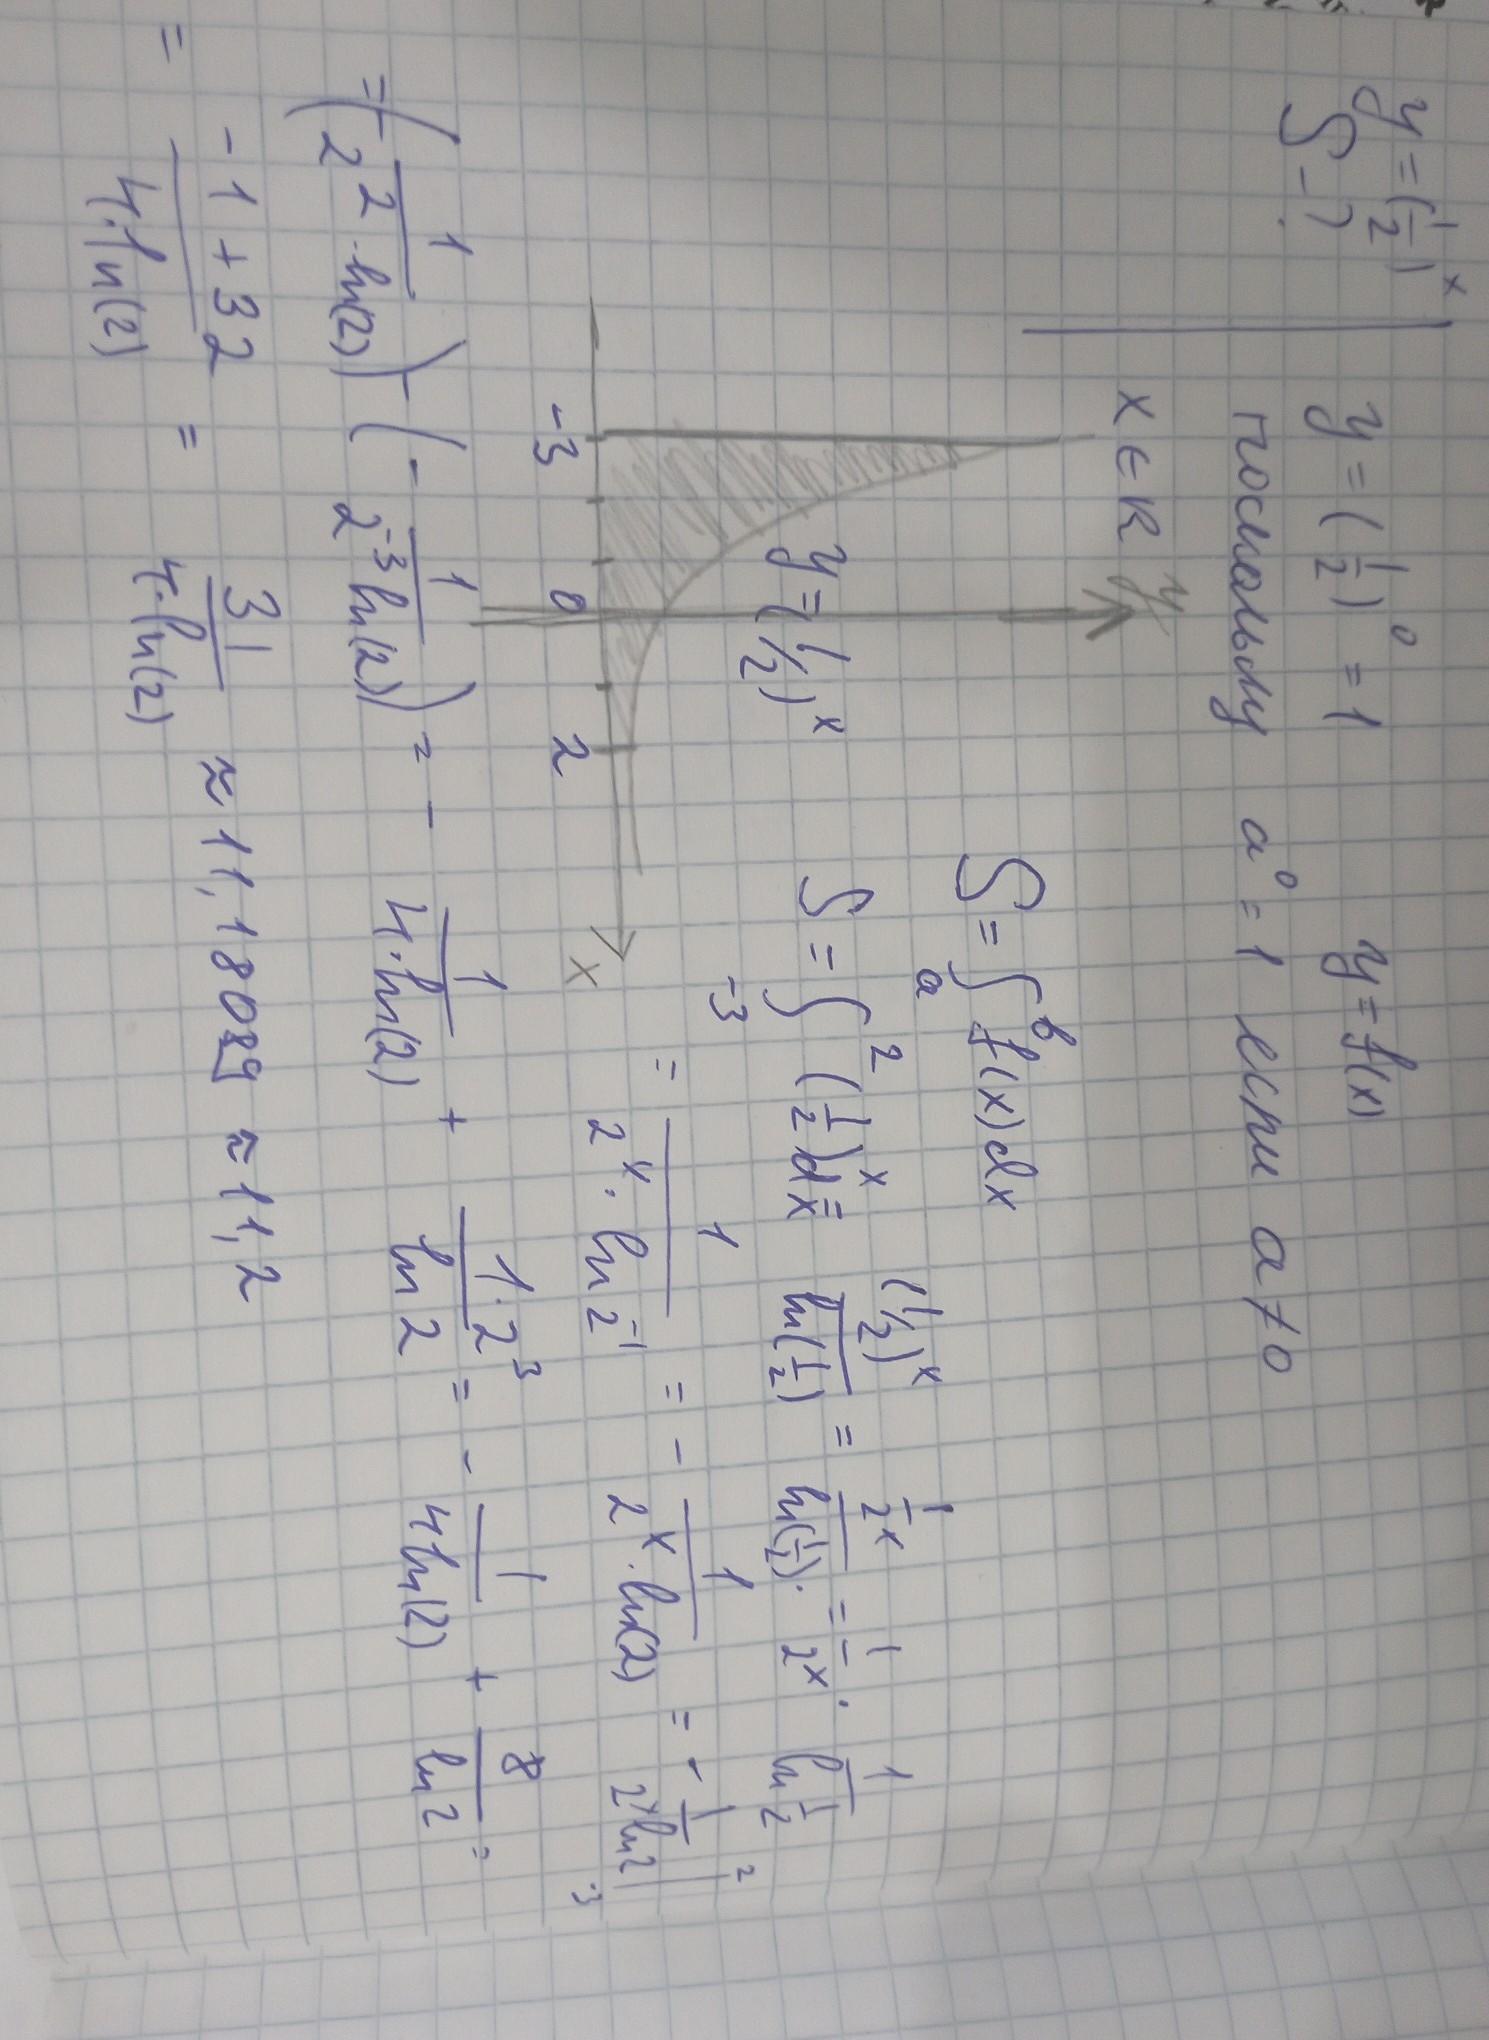 y = (1/2)^x
S - ?
y = (1/2)^0 = 1 y = f(x)
поскольку a^0 = 1 если a ≠ 0
x ∈ R
y
y = (1/2)^x
-3 0 2 x
S = ∫_a^b f(x)dx
S = ∫_{-3}^2 (1/2)^x dx = (1/2)^x / ln(1/2) = (1/2^x) / ln(1/2) · = 1/2^x · 1/ln 1/2
= 1/(2^x · ln 2^{-1}) = - 1/(2^x · ln(2)) = - 1/(2^x ln 2) |_{-3}^2
= (- 1/(2^2 · ln(2))) - (- 1/(2^{-3} ln(2))) = - 1/(4 · ln(2)) + (1 · 2^3)/(ln 2) = - 1/(4 ln(2)) + 8/(ln 2) =
= (-1 + 32)/(4 · ln(2)) = 31/(4 · ln(2)) ≈ 11,18089 ≈ 11,2